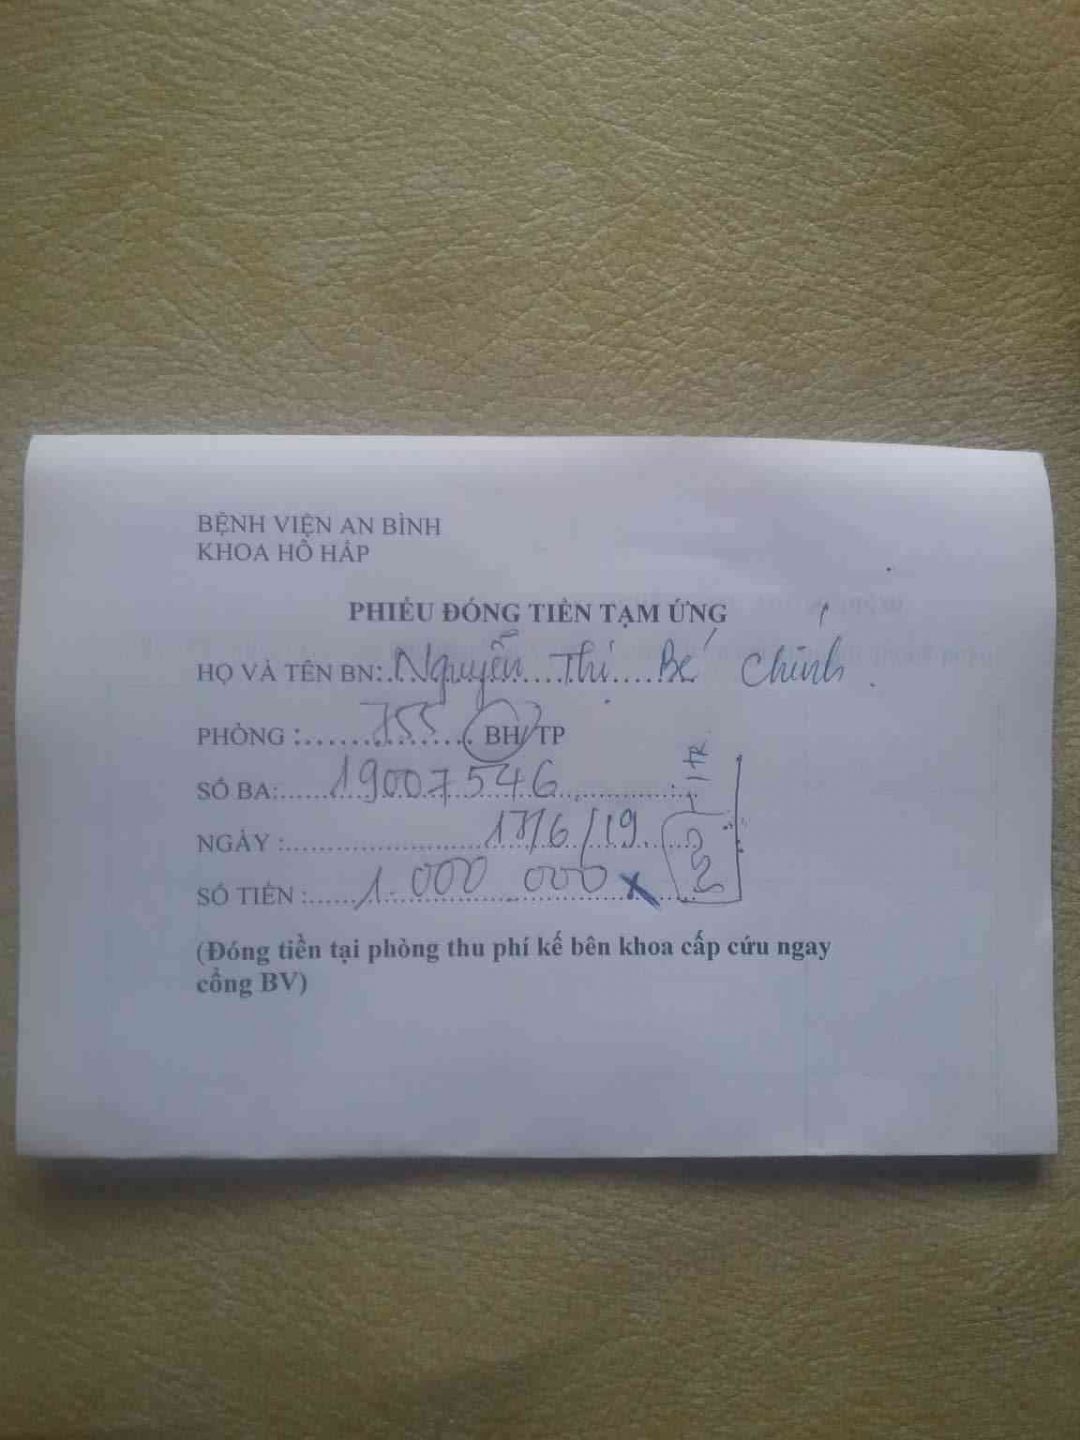 BỆNH VIỆN AN BÌNH
KHOA HÔ HẤP
PHIẾU ĐÓNG TIỀN TẠM ỨNG
HỌ VÀ TÊN BN: Nguyễn Thị Bé Chính
PHÒNG : 755 BH/TP
SỐ BA: 19007546
NGÀY : 17/6/19
SỐ TIỀN : 1.000 000
(Đóng tiền tại phòng thu phí kế bên khoa cấp cứu ngay
cổng BV)